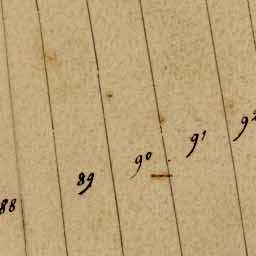 88 89 90 91 92